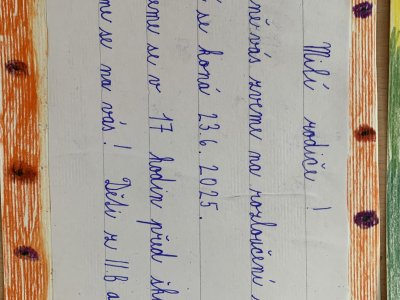 Milí rodiče!
vás zveme na rozloučení
se koná 23.6.2025.
se v 17 hodin před
se na vás! Děti z II.B a